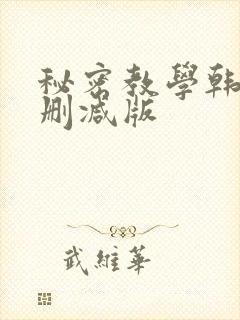 秘密教學韩
删减版
武維華